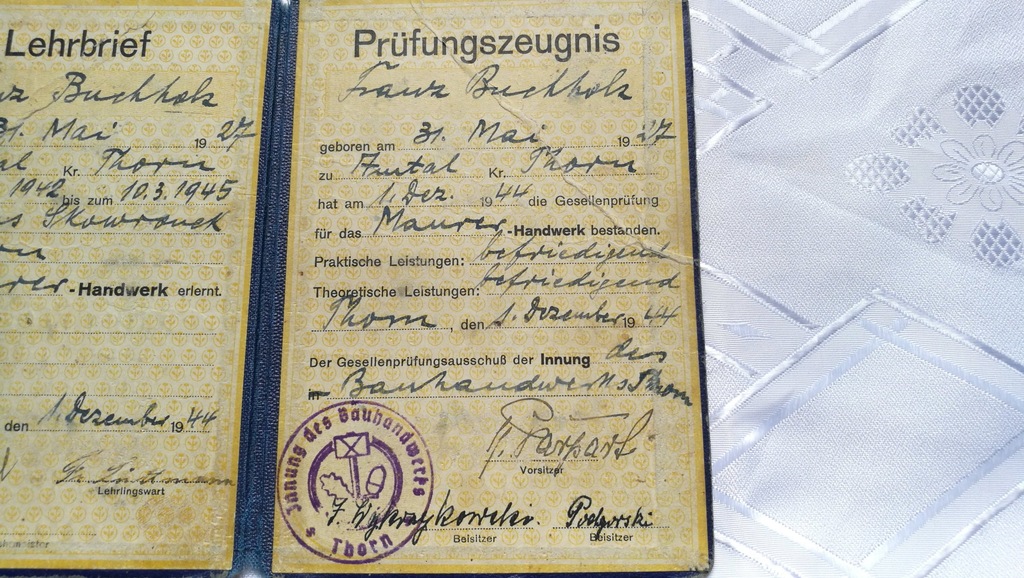 Lehrbrief
Buchholz
31. Mai 1927
Kr. Thorn
1942 bis zum 10.3.1945
Skowronek
-Handwerk erlernt.
den 1. Dezember 1944
Lehrlingswart
Prüfungszeugnis
Franz Buchholz
geboren am 31. Mai 1927
zu Amtal Kr. Thorn
hat am 1. Dez. 1944 die Gesellenprüfung
für das Maurer-Handwerk bestanden.
Praktische Leistungen: befriedigend
Theoretische Leistungen: befriedigend
Thorn, den 1. Dezember 1944
Der Gesellenprüfungsausschuß der Innung des
in Bauhandwerks Thorn
Parpart
Vorsitzer
Innung des Bauhandwerks
Thorn
Podgorski
Beisitzer Beisitzer